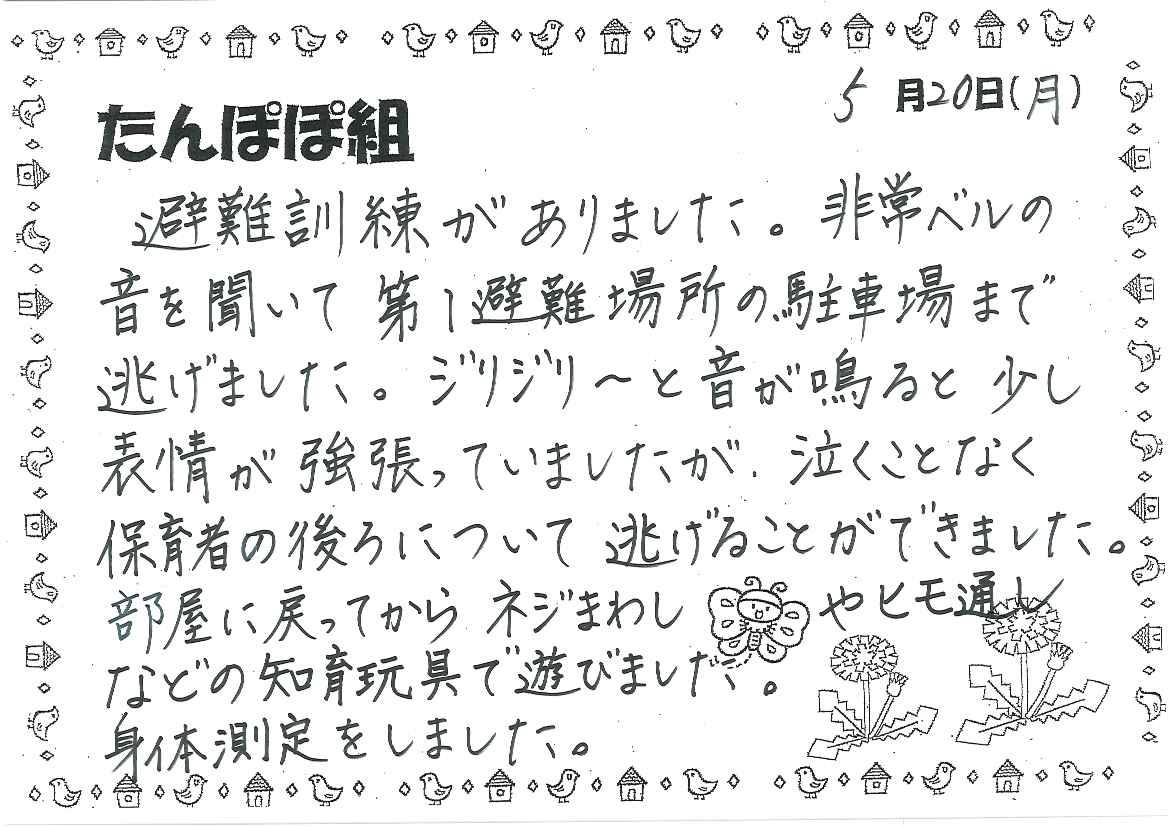 5月20日(月)
たんぽぽ組
避難訓練がありました。非常ベルの
音を聞いて第1避難場所の駐車場まで
逃げました。ジリジリ〜と音が鳴ると少し
表情が強張っていましたが、泣くことなく
保育者の後ろについて逃げることができました。
部屋に戻ってからネジまわしやヒモ通し
などの知育玩具で遊びました。
身体測定をしました。